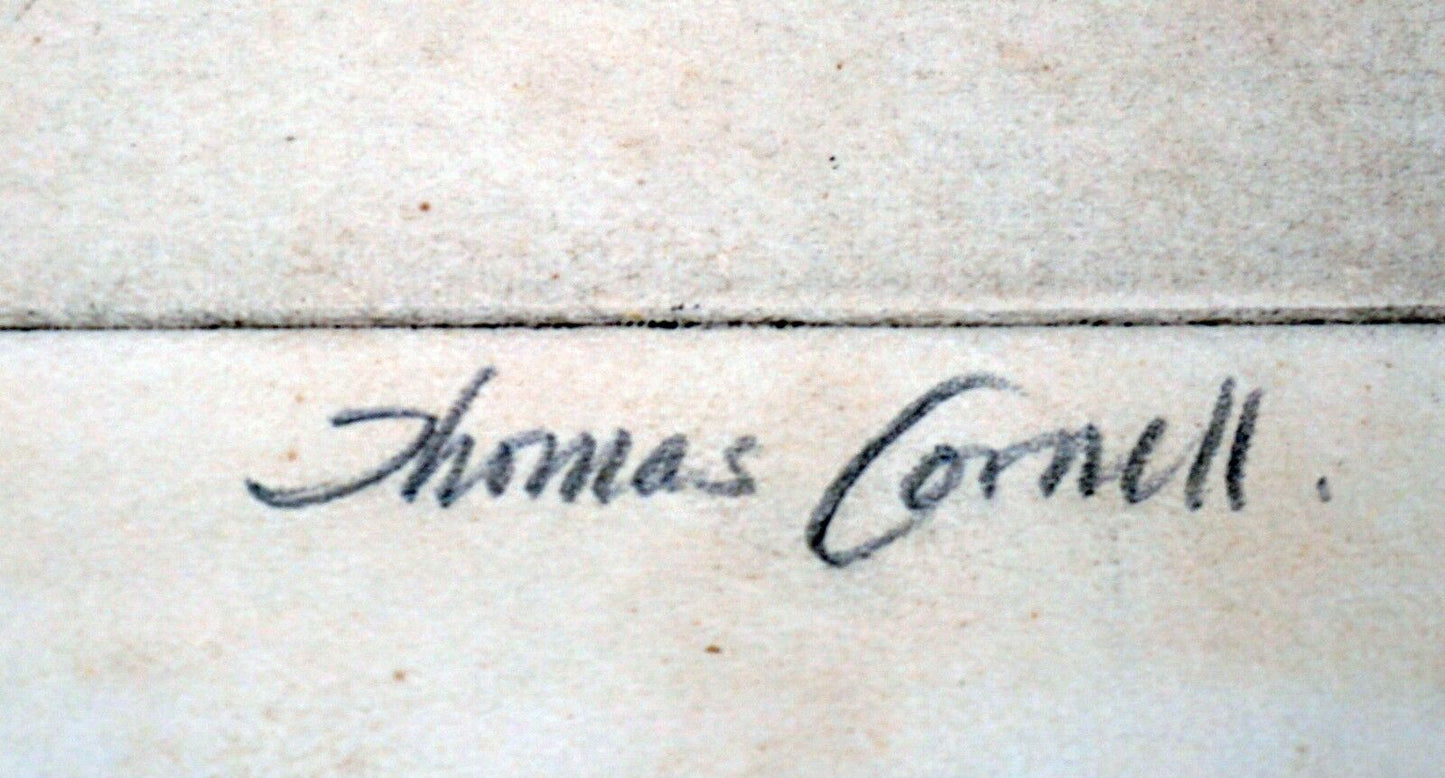 Thomas Cornell.